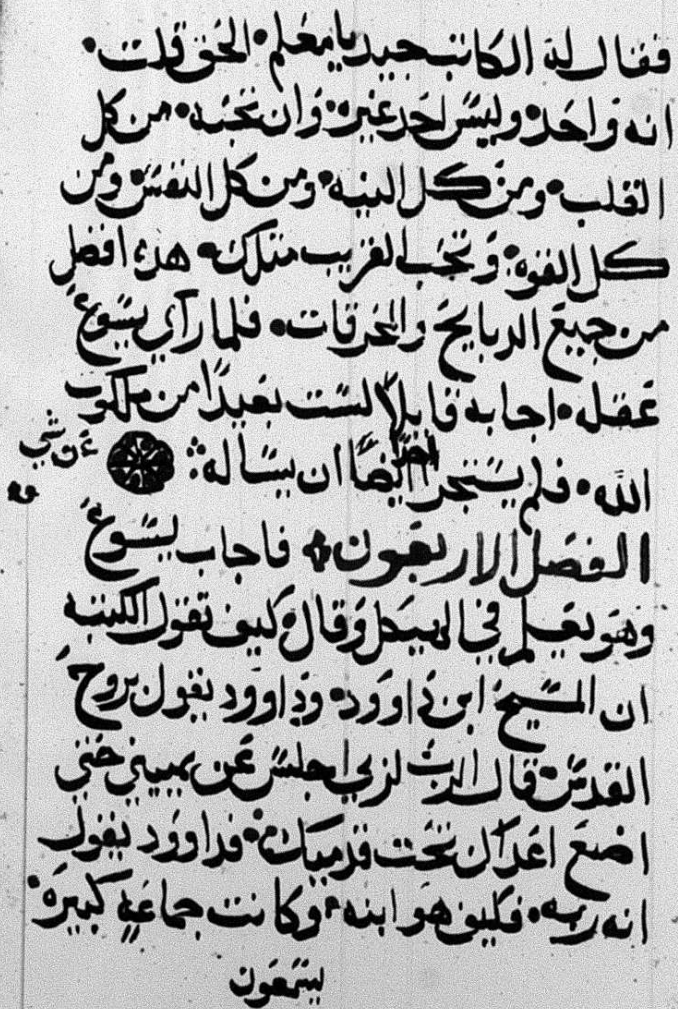 فقال له الكاتب جيد يا معلم الحق قلت
انه واحد وليس احد غيره وان تحبه من كل
القلب ومن كل النيه ومن كل النفس ومن
كل القوه وتحب القريب مثلك هذه افضل
من جميع الدبايح والمحرقات فلما راي يسوع
عقله اجابه قايلاً لست بعيدًا من ملكوت
الله فلم يستجر ايضًا ان يساله
عن شي
الفصل الاربعون فاجاب يسوع
وهو يعلم في الهيكل وقال كيف تقول الكتبه
ان المسيح ابن داوود وداوود يقول بروح
القدس قال الرب لربي اجلس عن يميني حتي
اضع اعداك تحت قدميك فداوود يقول
انه ربه فكيف هو ابنه وكانت جماعه كبيره
يسمعون